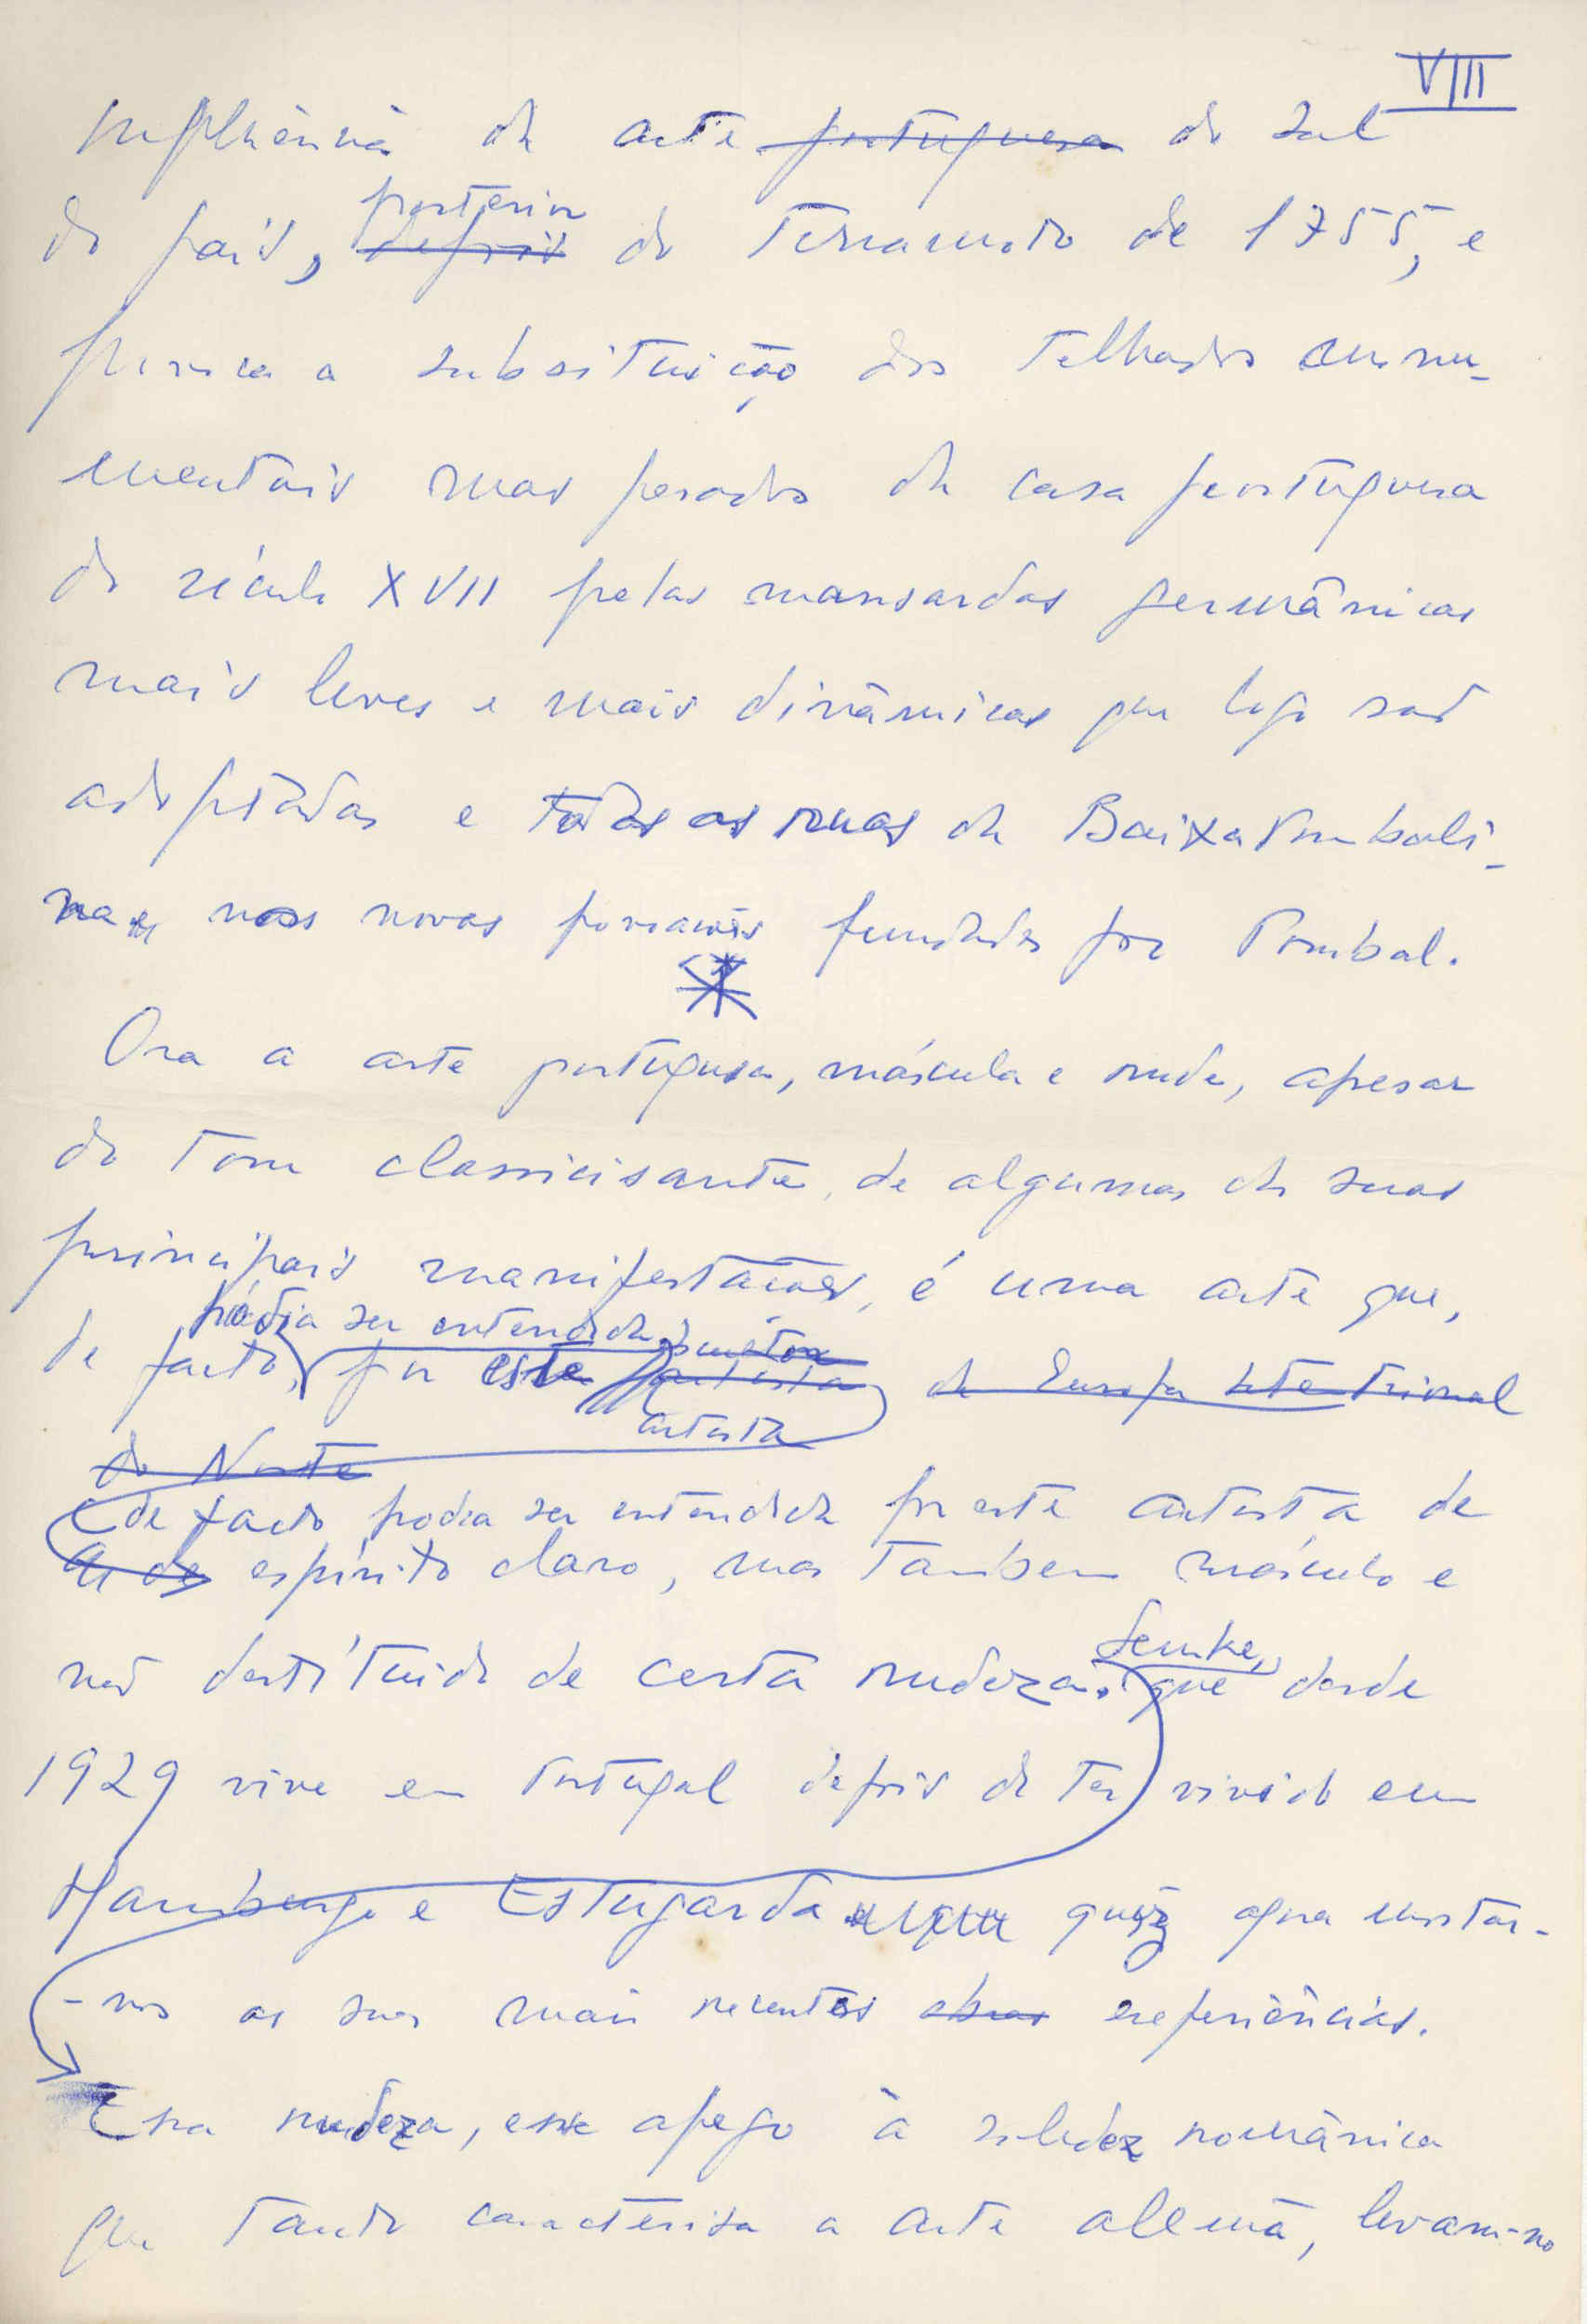 VIII
influência da arte portuguesa do sul
posterior
do país, depois do Terramoto de 1755, e
provoca a subsituição dos telhados monu-
mentais mas pesados da casa portuguesa
do século XVII pelas mansardas germânicas
mais leves e mais dinâmicas que logo são
adoptadas e todas as ruas da Baixa Pombali-
na e nas novas povoações fundadas por Pombal.
Ora a arte portuguesa, máscula e rude, apesar
do tom classicisante, de algumas das suas
principais manifestações, é uma arte que,
pódia ser entendida
de facto, por este artista da Europa Setentrional
artista
do Norte
e de facto podia ser entendida por este artista de
espírito claro, mas tambem másculo e
Semke,
não destítuido de certa rudeza. que desde
1929 vive em Portugal depois de ter vivido em
Hamburgo e Estugarda quiz agora mostar-
-nos as suas mais recentes obras experiências.
Essa rudeza, esse apego à solidez românica
que tanto caracteriza a arte alemã, levam-no